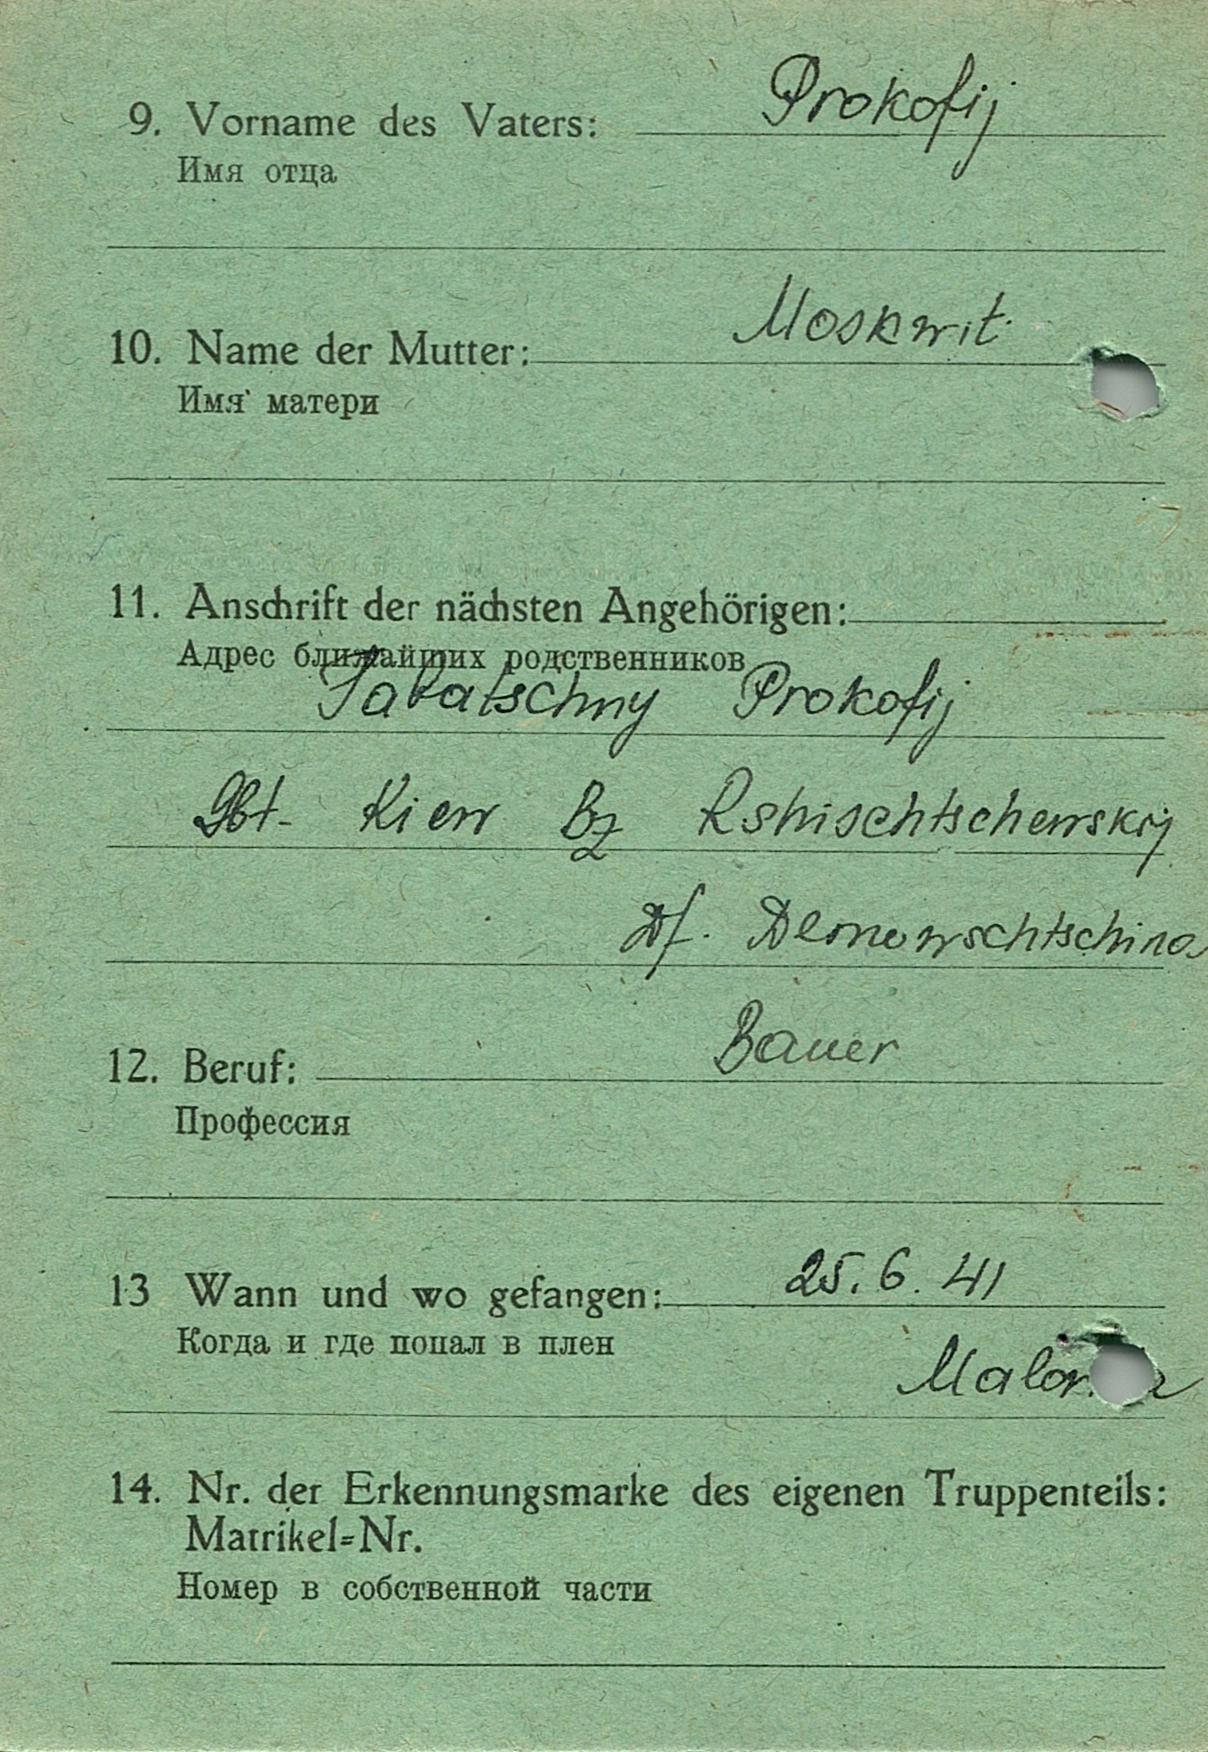 9. Vorname des Vaters: Prokofij
Имя отца
10. Name der Mutter: Moskwit
Имя матери
11. Anschrift der nächsten Angehörigen:
Адрес ближайших родственников
Tabatschny Prokofij
Gbt- Kiew Bz Rshischtschewskij
Df. Demowschtschina
12. Beruf: Bauer
Профессия
13 Wann und wo gefangen: 25. 6. 41
Когда и где попал в плен
14. Nr. der Erkennungsmarke des eigenen Truppenteils:
Matrikel=Nr.
Номер в собственной части